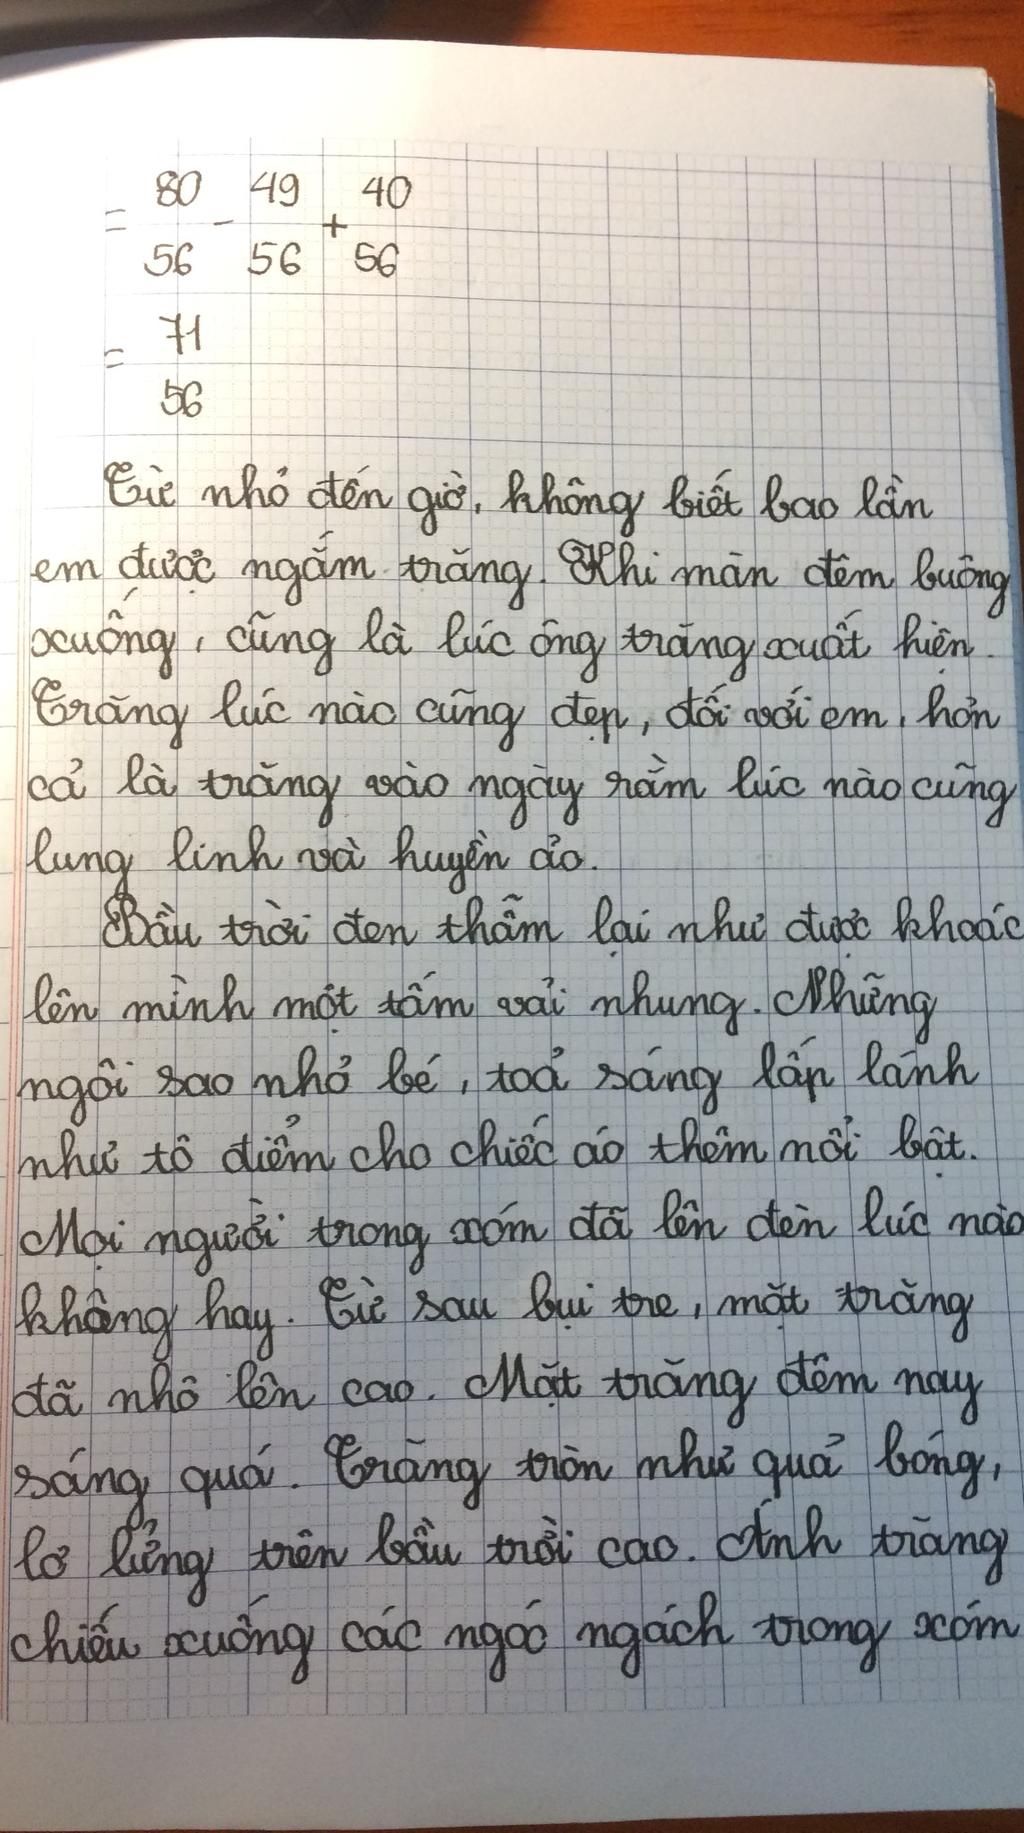 = 80/56 - 49/56 + 40/56
= 71/56
Từ nhỏ đến giờ, không biết bao lần
em được ngắm trăng. Khi màn đêm buông
xuống, cũng là lúc ông trăng xuất hiện.
Trăng lúc nào cũng đẹp, đối với em, hơn
cả là trăng vào ngày rằm lúc nào cũng
lung linh và huyền ảo.
Bầu trời đen thẫm lại như được khoác
lên mình một tấm vải nhung. Những
ngôi sao nhỏ bé, toả sáng lấp lánh
như tô điểm cho chiếc áo thêm nổi bật.
Mọi người trong xóm đã lên đèn lúc nào
không hay. Từ sau bụi tre, mặt trăng
đã nhô lên cao. Mặt trăng đêm nay
sáng quá. Trăng tròn như quả bóng,
lơ lửng trên bầu trời cao. Ánh trăng
chiếu xuống các ngóc ngách trong xóm